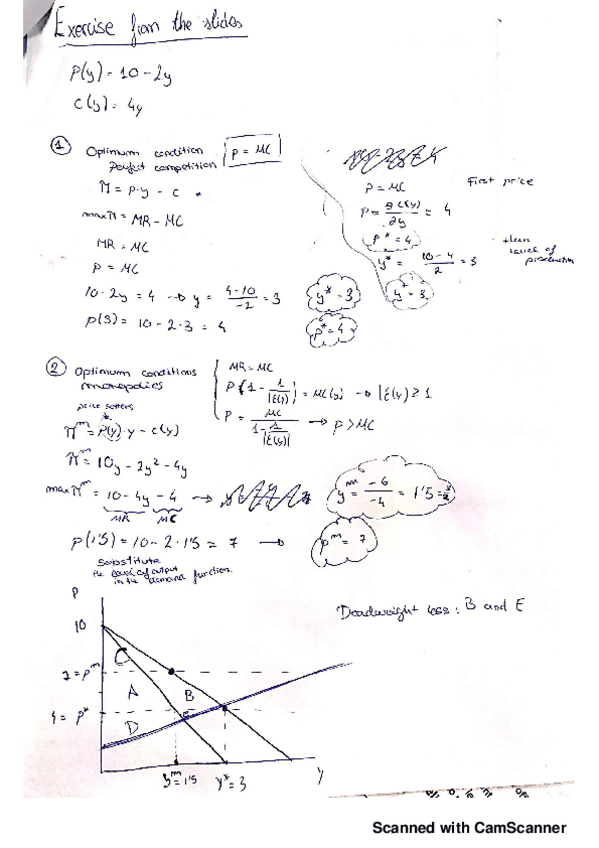 Exercise from the slides
P(y) = 10 - 2y
C(y) = 4y
① Optimum condition perfect competition P = MC
π = P·y - c
max π = MR - MC
MR = MC
P = MC
10 - 2y = 4 → y = 4-10/-2 = 3
y* = 3
P(3) = 10 - 2·3 = 4
P* = 4
P = MC
First price
P = ∂C(y)/∂y = 4
P* = 4
then level of production
y* = 10-4/2 = 3
y* = 3
② Optimum conditions monopolies
MR = MC
P(1 - 1/|ε(y)|) = MC(y) → |ε(y)| ≥ 1
P = MC/1-1/|ε(y)| → P > MC
price setters
πᵐ = P(y)·y - c(y)
πᵐ = 10y - 2y² - 4y
max πᵐ = 10 - 4y - 4
MR MC
yᵐ = -6/-4 = 1'5
P(1'5) = 10 - 2·1'5 = 7 →
Pᵐ = 7
Substitute
the level of output
in the demand function.
Deadweight loss: B and E
P
10
C
7 = Pᵐ
A
B
4 = P*
D
E
yᵐ = 1'5
y* = 3
y
Scanned with CamScanner